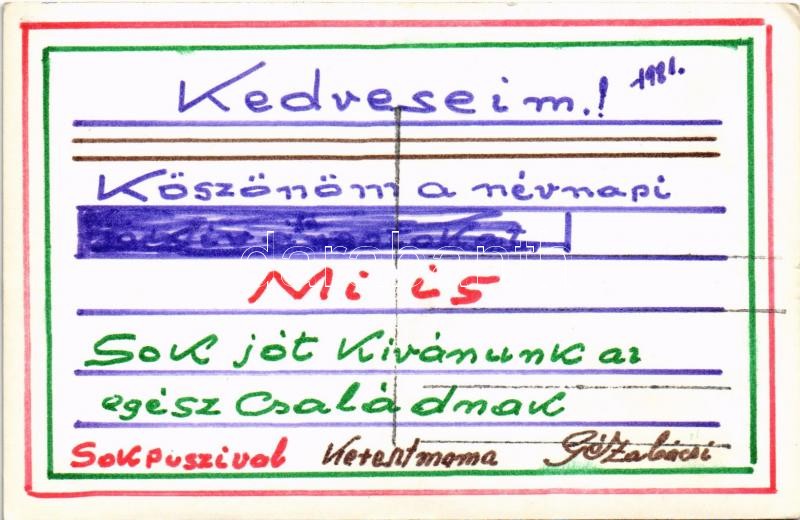 Kedveseim.! 1981.
Köszönöm a névnapi
Mi is
Sok jót Kívánunk az
egész Családnak
Sok puszival Keresztmama Gézabácsi
darabanth